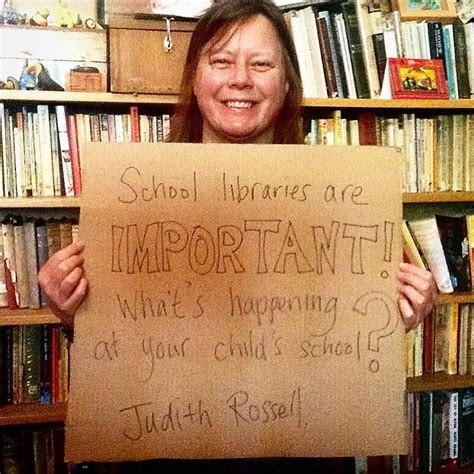 School libraries are
IMPORTANT!
What's happening
at your child's school?
Judith Rossell.